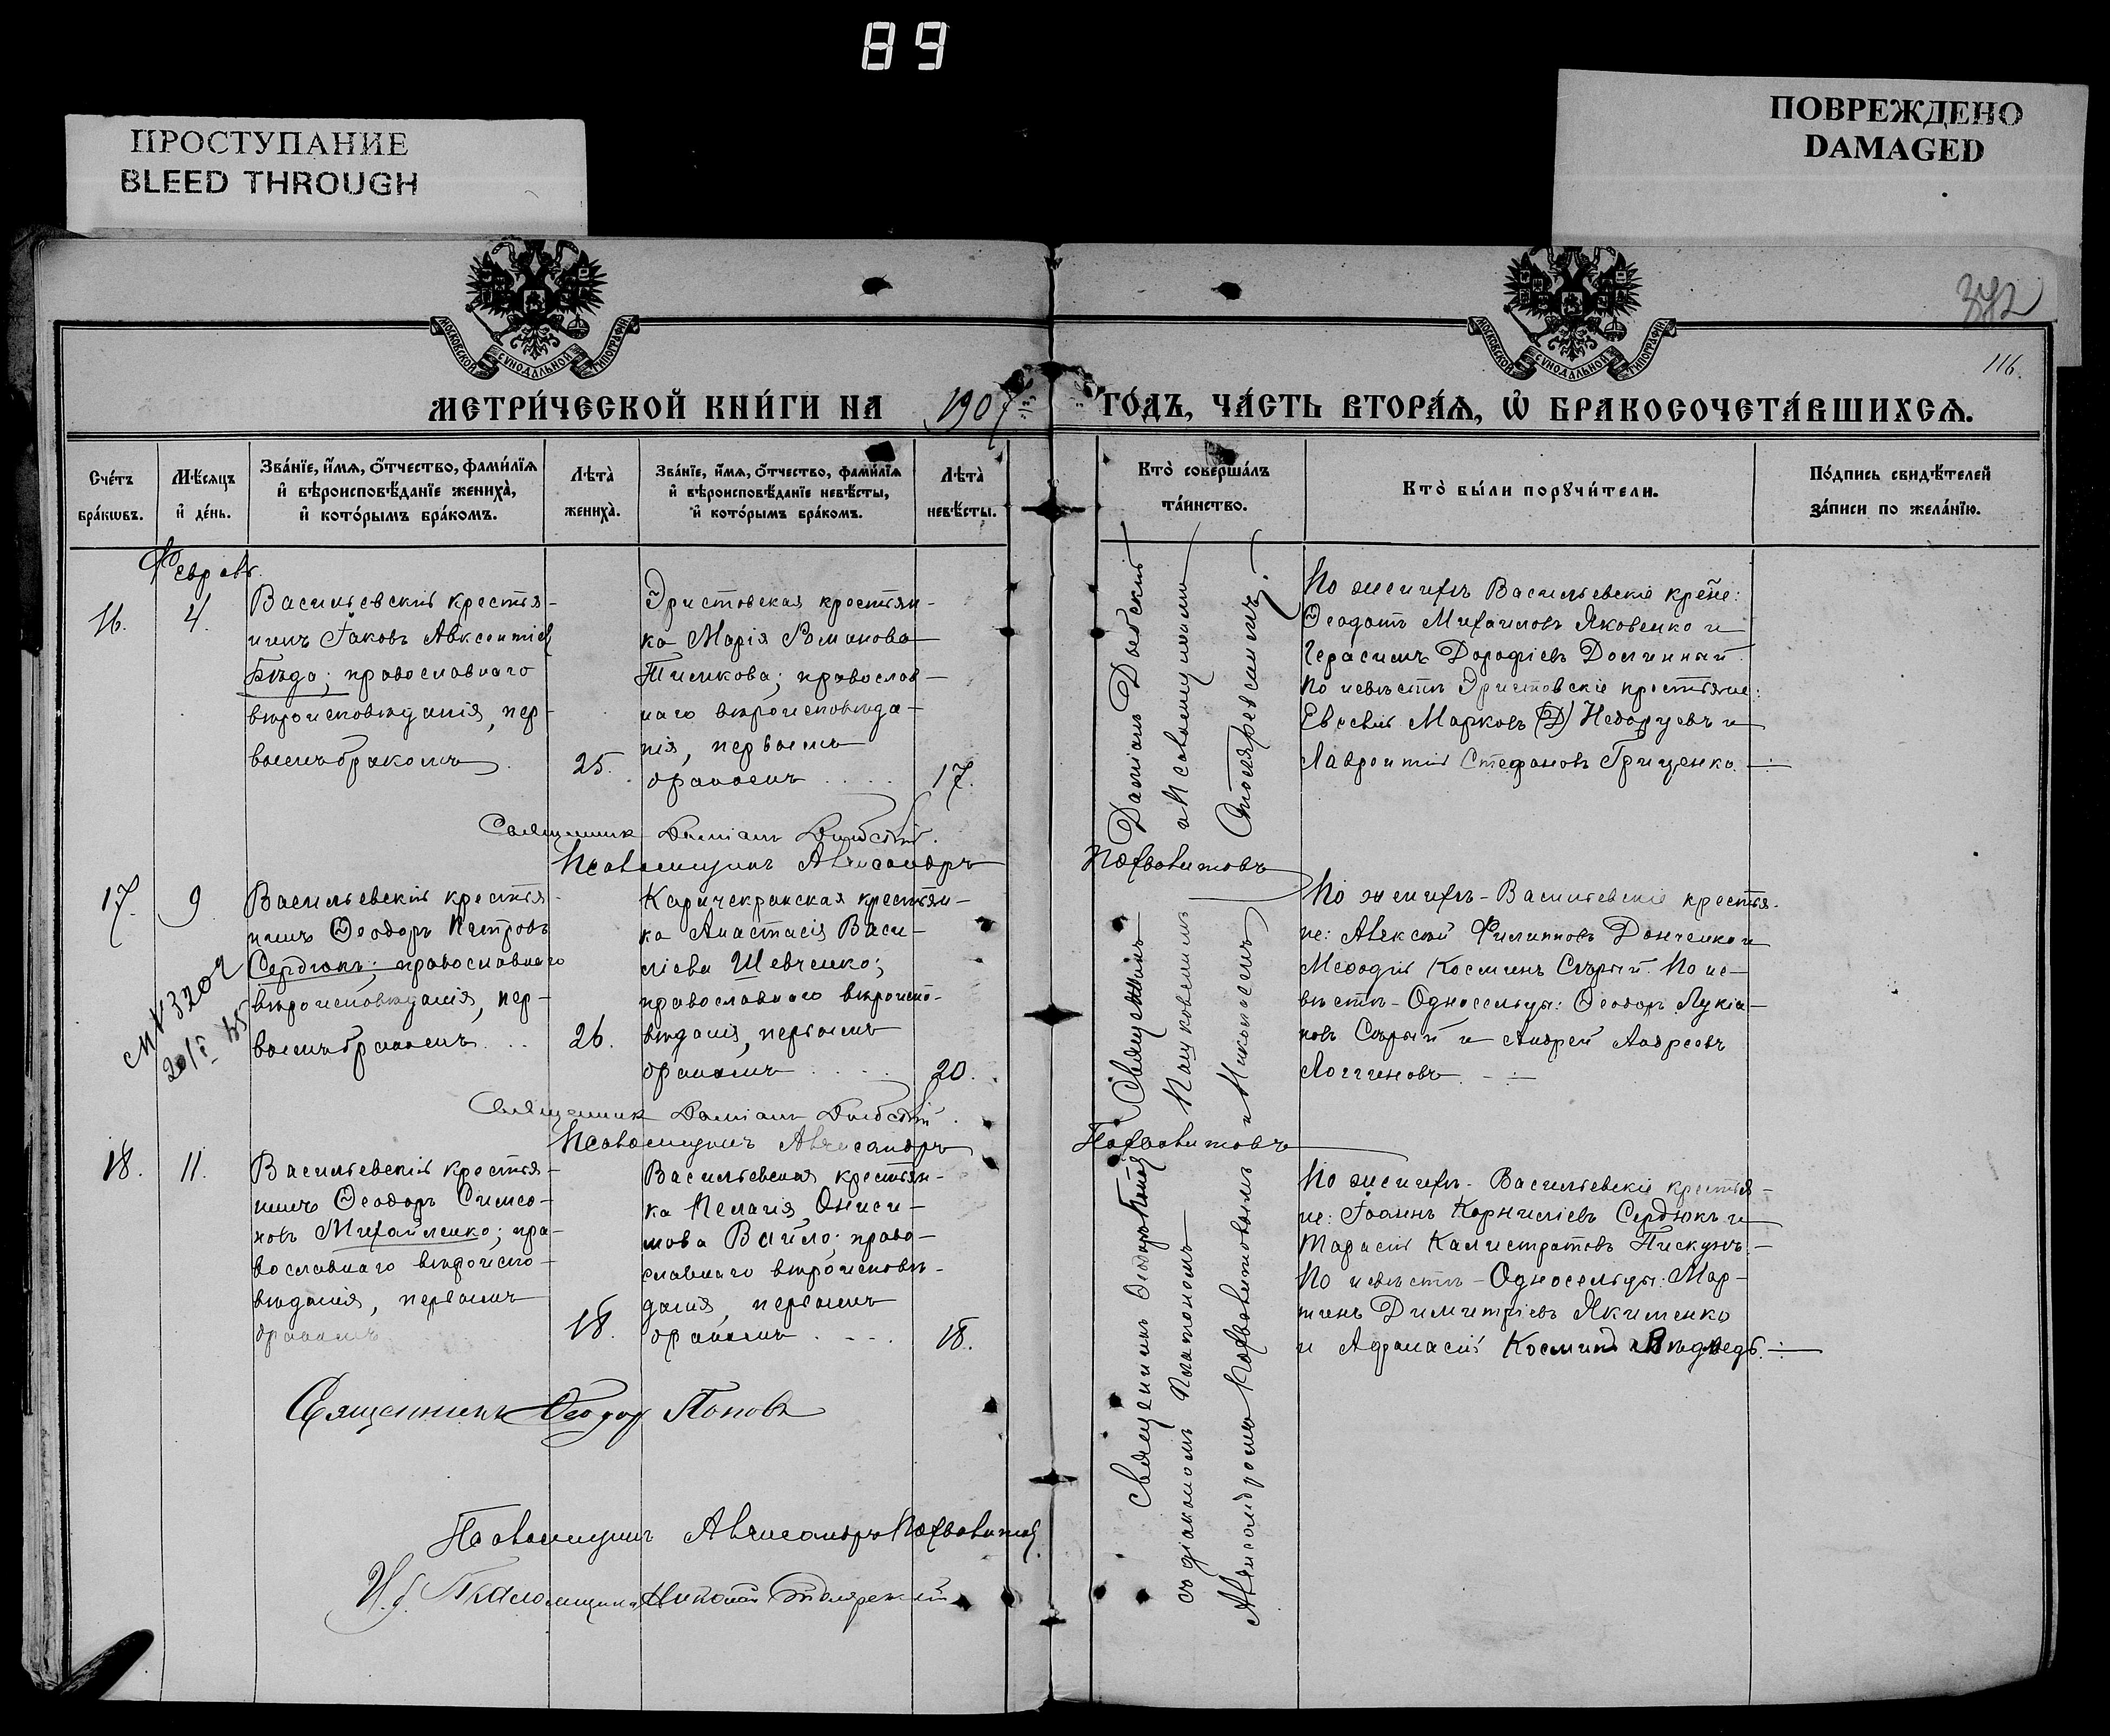 89
ПРОСТУПАНИЕ
BLEED THROUGH
ПОВРЕЖДЕНО
DAMAGED
372
116.
МОСКОВСКОЙ СУНОДАЛЬНОЙ ТИПОГРАФІИ
МОСКОВСКОЙ СУНОДАЛЬНОЙ ТИПОГРАФІИ
МЕТРИ́ЧЕСКОЙ КНИ́ГИ НА 1907 ГО́ДЪ, ЧА́СТЬ ВТОРА́Ѧ, Ѡ҆ БРАКОСОЧЕТА́ВШИХСѦ.
Сче́тъ бра́кѡвъ.
Мѣ́сѧцъ и҆ де́нь.
Зва́нїе, и҆́мѧ, ѻ҆́тчество, фами́лїѧ и҆ вѣроисповѣ́данїе жениха̀, и҆ кото́рымъ бра́комъ.
Лѣ̑та̀ жениха̀.
Зва́нїе, и҆́мѧ, ѻ҆́тчество, фами́лїѧ и҆ вѣроисповѣ́данїе невѣ́сты, и҆ кото́рымъ бра́комъ.
Лѣ̑та̀ невѣ́сты.
Кто̀ соверша́лъ та́инство.
Кто̀ бы́ли порꙋчи́тели.
По́дпись свидѣ́телей за́писи по жела́нїю.
Февраль.
16.
4.
Васильевскій крестья-
нинъ Іаковъ Авксентіев
Бѣда; православнаго
вѣроисповѣданія, пер-
вымъ бракомъ
25.
Эристовская крестьян-
ка Марія Романова
Тимкова; православ-
наго вѣроисповѣда-
нія, первымъ
бракомъ
17.
Даміанъ Діевскій
и Псаломщикомъ
Столяревскимъ.
По женихѣ Васильевскіе крѣне:
Ѳеодотъ Михаиловъ Яковенко и
Герасимъ Дорофіевъ Долинный.
По невѣстѣ Эристовскіе крестьяне:
Евсевій Марковъ (Д) Недоруевъ и
Лаврентій Стефановъ Гриценко.
Священникъ Даміанъ Діевскій.
Псаломщикъ Александръ Похвалитовъ
17.
9
Васильевскій крестья-
нинъ Ѳеодоръ Петровъ
Сердюкъ; православнаго
вѣроисповѣданія, пер-
вымъ бракомъ
26.
Каричекракская крестьян-
ка Анастасія Васи-
ліева Шевченко;
православнаго вѣроиспо-
вѣданія, первымъ
бракомъ
20.
По женихѣ - Васильевскіе крестья-
не: Алексій Филипповъ Донченко и
Меѳодій Косминъ Сѣрый. По не-
вѣстѣ - Односельцы: Ѳеодоръ Лукіа-
новъ Сѣрый и Андрей Андреевъ
Логгиновъ.
Священникъ Даміанъ Діевскій.
Псаломщикъ Александръ Похвалитовъ
18.
11.
Васильевскій крестья-
нинъ Ѳеодоръ Симео-
новъ Михайленко; пра-
вославнаго вѣроиспо-
вѣданія, первымъ
бракомъ
18.
Васильевская крестьян-
ка Пелагія Ониси-
мова Вайло; право-
славнаго вѣроисповѣ-
данія, первымъ
бракомъ
18.
Священникъ Ѳеодоръ Поповъ
съ діакономъ Платономъ
По женихѣ - Васильевскіе крестья-
не: Іоаннъ Корниліевъ Сердюкъ и
Тарасій Калистратовъ Пискунъ.
По невѣстѣ - Односельцы: Мар-
тинъ Димитріевъ Якименко
и Афанасій Косминъ
Священникъ Ѳеодоръ Поповъ
Псаломщикъ Александръ Похвалитовъ
И. д. Псаломщика Николай Столяревскій